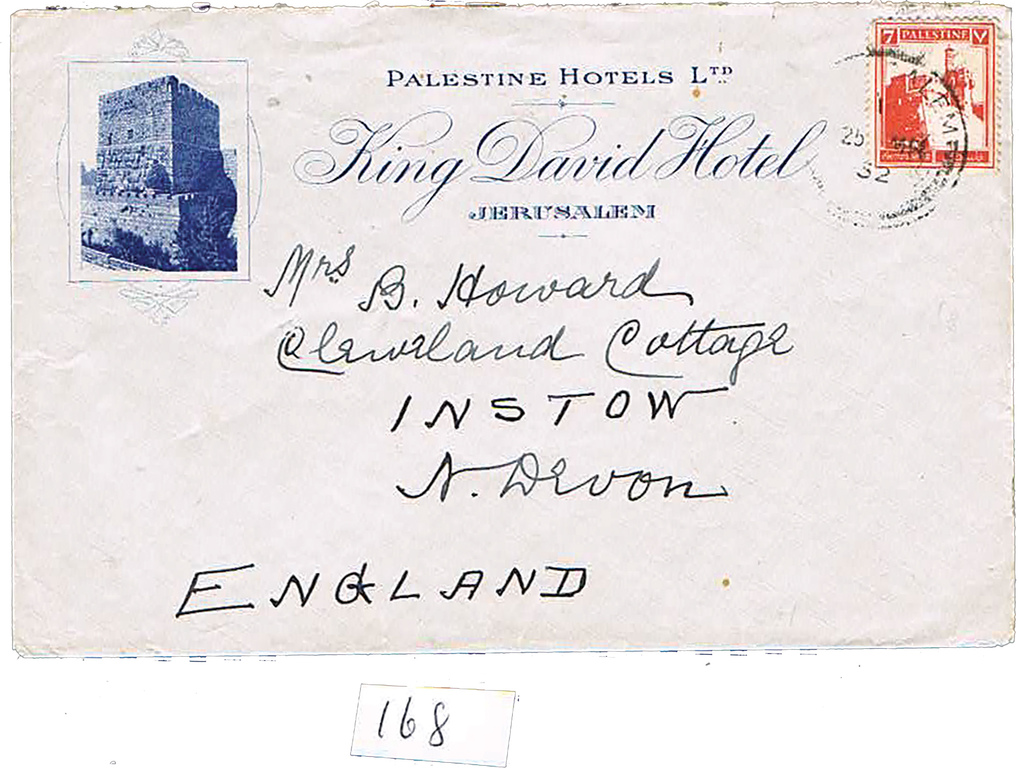 PALESTINE HOTELS LTD
King David Hotel
JERUSALEM
7 PALESTINE
25
32
Mrs B. Howard
Cleveland Cottage
INSTOW
N. Devon
ENGLAND
168